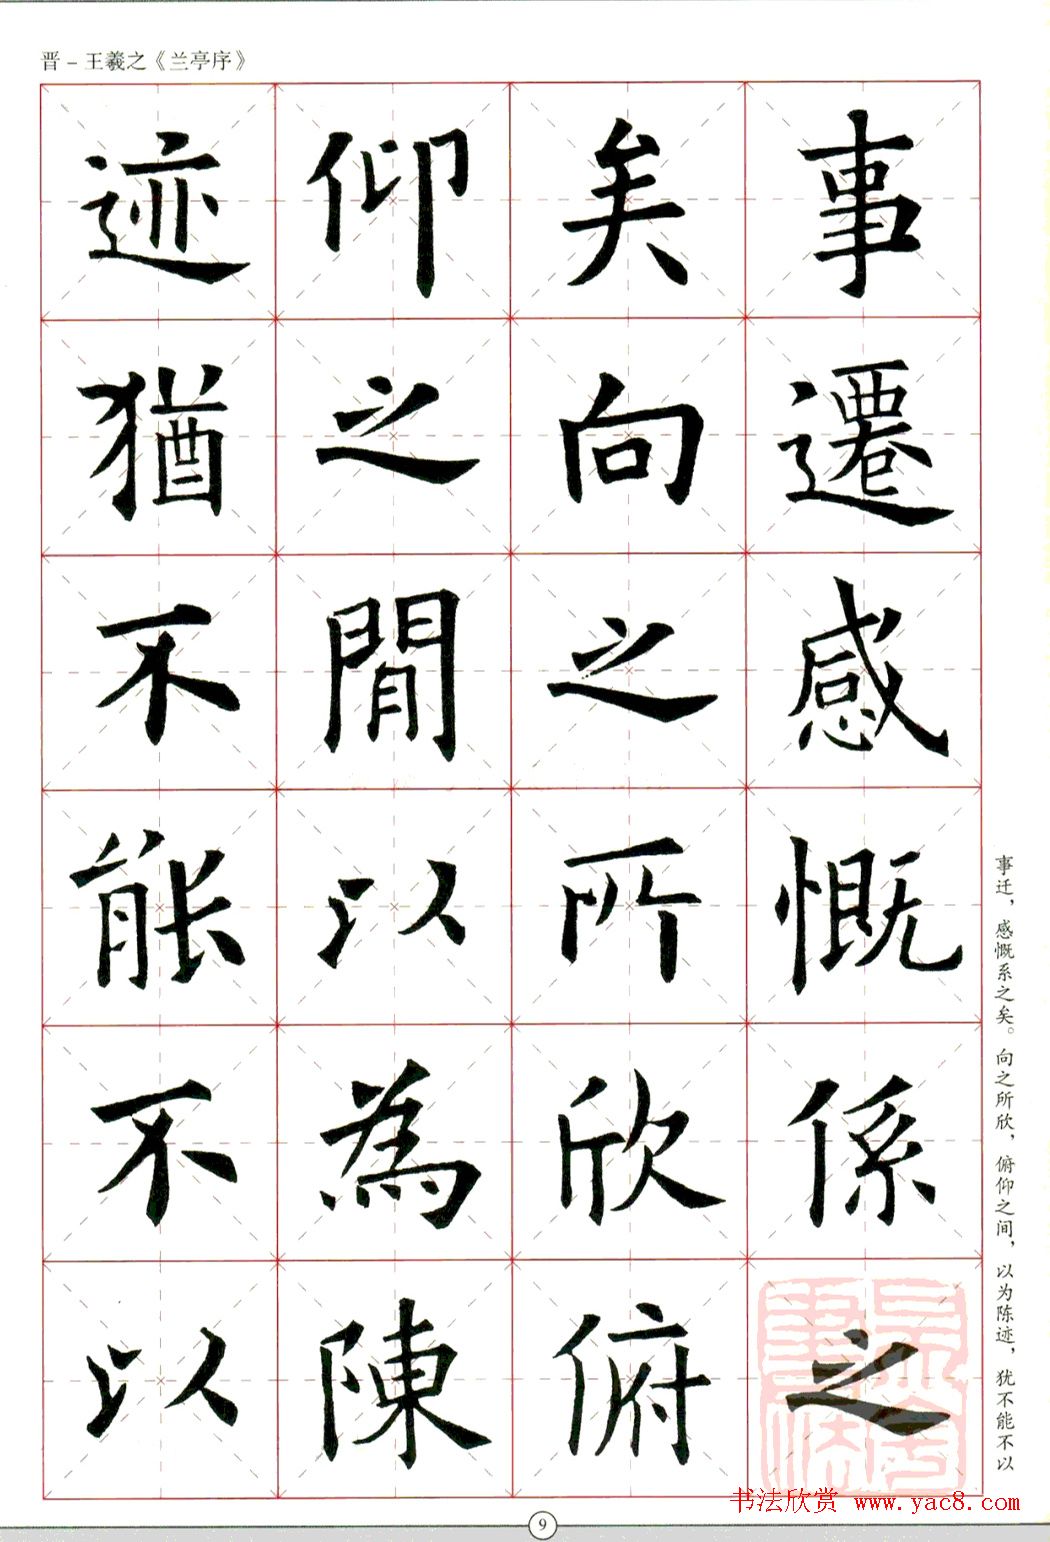 晋－王羲之《兰亭序》
事遷感慨係之
矣向之所欣俯
仰之閒以為陳
迹猶不能不以
事迁，感慨系之矣。向之所欣，俯仰之间，以为陈迹，犹不能不以
书法欣赏 www.yac8.com
9